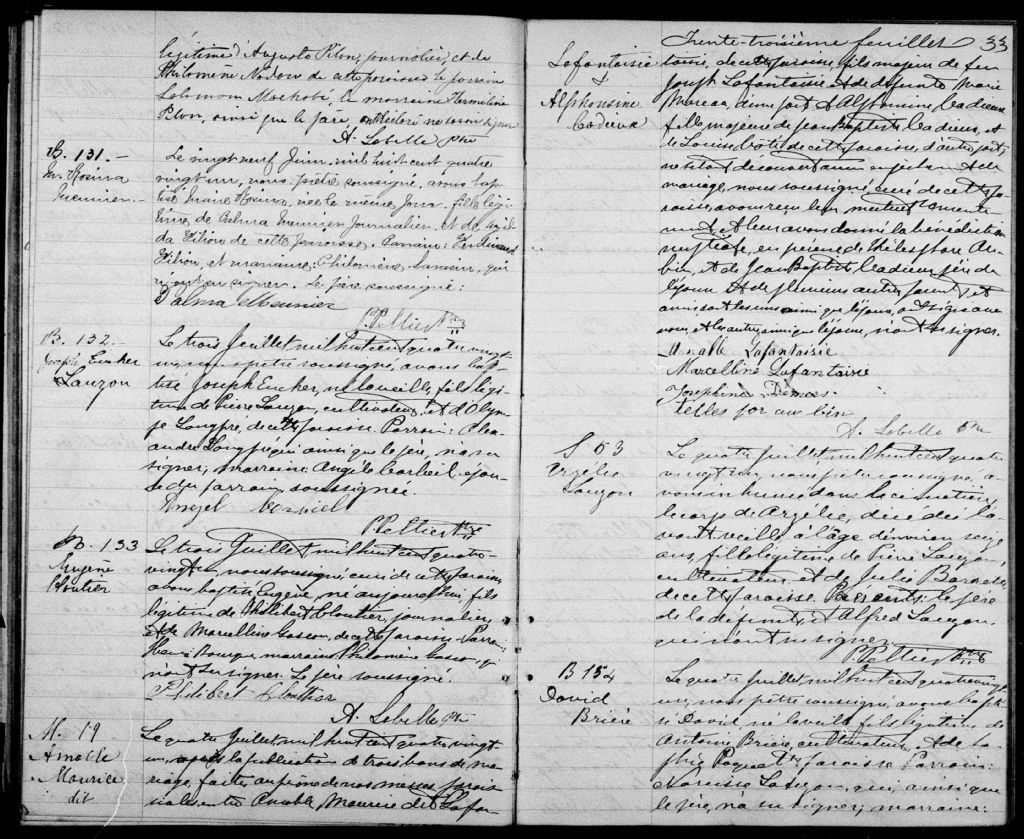 légitime d'Auguste Pilon, journalier, et de
Philomène Nadon de cette paroisse le parrain
Salomon la marraine Herméline
Pilon, ainsi que le père, ont déclaré ne savoir signer
A. Labelle Ptre
B. 131. —
M. Rosina
Meunier. —
Le vingt neuf Juin mil huit cent quatre
vingt un, nous prêtre soussigné, avons bap-
tisé Marie Rosina, née le même jour, fille légi-
time, de Palma Meunier journalier, et de
da Filion de cette paroisse. Parrain: Ferdinand
Filion, et marraine: Philomène, qui
n'ont su signer. Le père soussigné:
Palma Meunier
P. Pellier Ptre
B. 132.
Joseph Eucher
Lauzon
Le trois Juillet mil huit cent quatre vingt
un, nous prêtre soussigné, avons bap-
tisé Joseph Eucher, né la veille, fils légi-
time de Pierre Lauzon, cultivateur, et d'Olym-
pe Longpré, de cette paroisse. Parrain:
andre Longpré qui ainsi que le père, n'a su
signer; marraine: Angèle épou-
se du parrain, soussignée.
P. Pellier Ptre
B. 133
Eugène
Cloutier
Le trois Juillet mil huit cent quatre-
vingt un, nous soussigné curé de cette paroisse,
avons baptisé Eugène, né aujourd'hui, fils
légitime de Philibert Cloutier, journalier,
et de Marcelline Gascon, de cette paroisse. Parrain:
Henri Bourque, marraine Philomène Gascon, qui
n'ont su signer. Le père soussigné.
Philibert Clouthier
A. Labelle Ptre
M. 19
Amable
Maurice
dit
Le quatre Juillet, mil huit cent quatre, vingt-
un, après la publication de trois bans de ma-
riage, faite au prône de nos messes parois-
siales entre Amable, Maurice dit Lafan-
Trente-troisième feuillet 33
Lafantaisie
&
Alphonsine
Cadieux
taisie, de cette paroisse, fils majeur de feu
Joseph Lafantaisie et de défunte Marie
d'une part et Alphonsine, Cadieux
fille majeure de Jean Baptiste Cadieux, et
de Louise de cette paroisse, d'autre part,
ne s'étant découvert aucun empêchement de
mariage, nous soussigné, curé de cette pa-
roisse, avons reçu leur mutuel consente-
ment et leur avons donné la bénédiction
nuptiale, en présence de
et de Jean Baptiste Cadieux père de
l'épouse et de plusieurs autres parents et
amis dont les uns ainsi que l'époux, ont signé avec
nous, et les autres, ainsi que l'épouse, n'ont su signer.
Amable Lafantaisie
Marcelline Lafantaisie
Josephine
A. Labelle Ptre
S 53
Azélie
Lauzon
Le quatre Juillet, mil huit cent quatre
vingt un, nous prêtre soussigné, a-
vons inhumé dans le cimetière,
le corps de Azélie, décédée l'a-
vant veille à l'âge d'environ seize
ans, fille légitime de Pierre Lauzon,
cultivateur, et de Julie
de cette paroisse. Présents: le père
de la défunte, et Alfred Lauzon
qui n'ont su signer.
P. Pellier Ptre
B 134
David
Brière
Le quatre Juillet, mil huit cent quatre vingt
un, nous prêtre soussigné, avons bapti-
sé David né la veille fils légitime de
Antoine Brière, cultivateur, et de So-
phie Paquette, paroisse Parrain:
Narcisse Lauzon, qui, ainsi que
le père, n'a su signer; marraine: